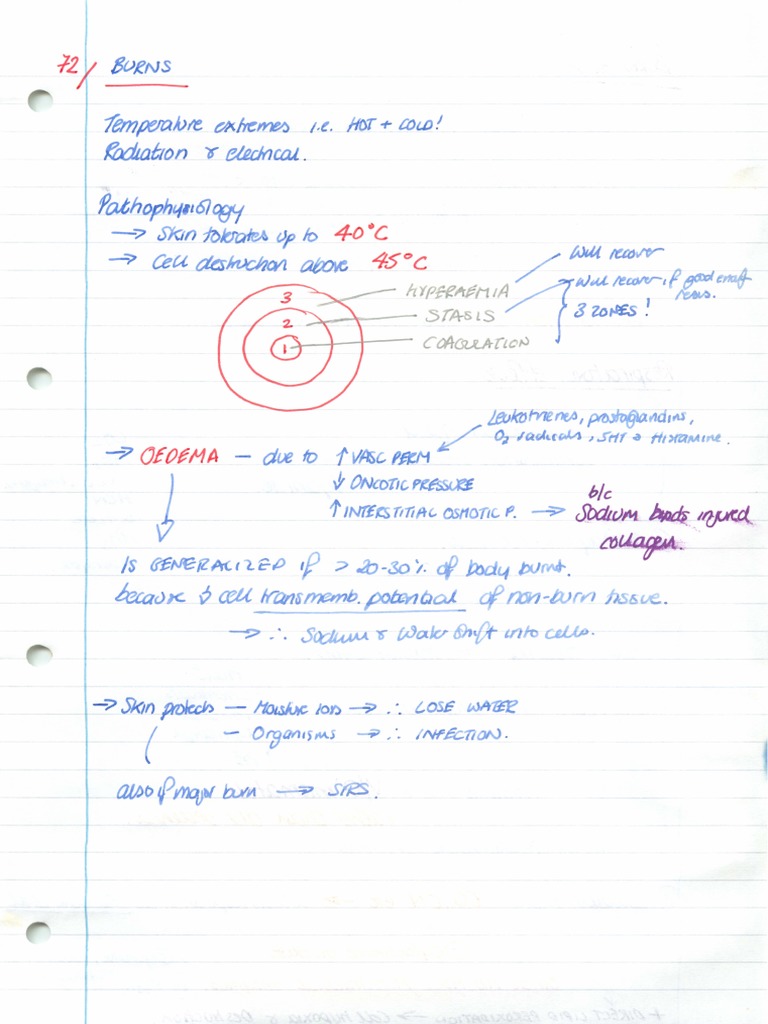 72/ BURNS
Temperature extremes i.e. HOT + COLD!
Radiation & electrical.
Pathophysiology
→ Skin tolerates up to 40°C
→ Cell destruction above 45°C
Will recover
3 HYPERAEMIA
Will recover if good enuff
resus.
2 STASIS
3 ZONES!
1 COAGULATION
Leukotrienes, prostaglandins,
O2 radicals, 5HT & Histamine.
→ OEDEMA – due to ↑ VASC PERM
↓ ONCOTIC PRESSURE
↑ INTERSTITIAL OSMOTIC P. → b/c
Sodium binds injured
collagen.
Is GENERALIZED if > 20-30% of body burnt.
because ↓ cell transmemb. potential of non-burn tissue.
→ ∴ Sodium & Water shift into cells.
→ Skin protects – Moisture loss → ∴ LOSE WATER
– Organisms → ∴ INFECTION.
also if major burn → SIRS.